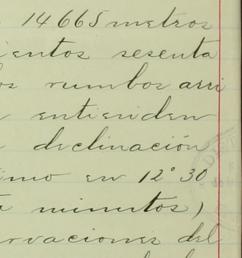 14665 metros
ientos sesenta
os rumbos arri
entienden
declinación
imo en 12° 30
minutos)
rvaciones del